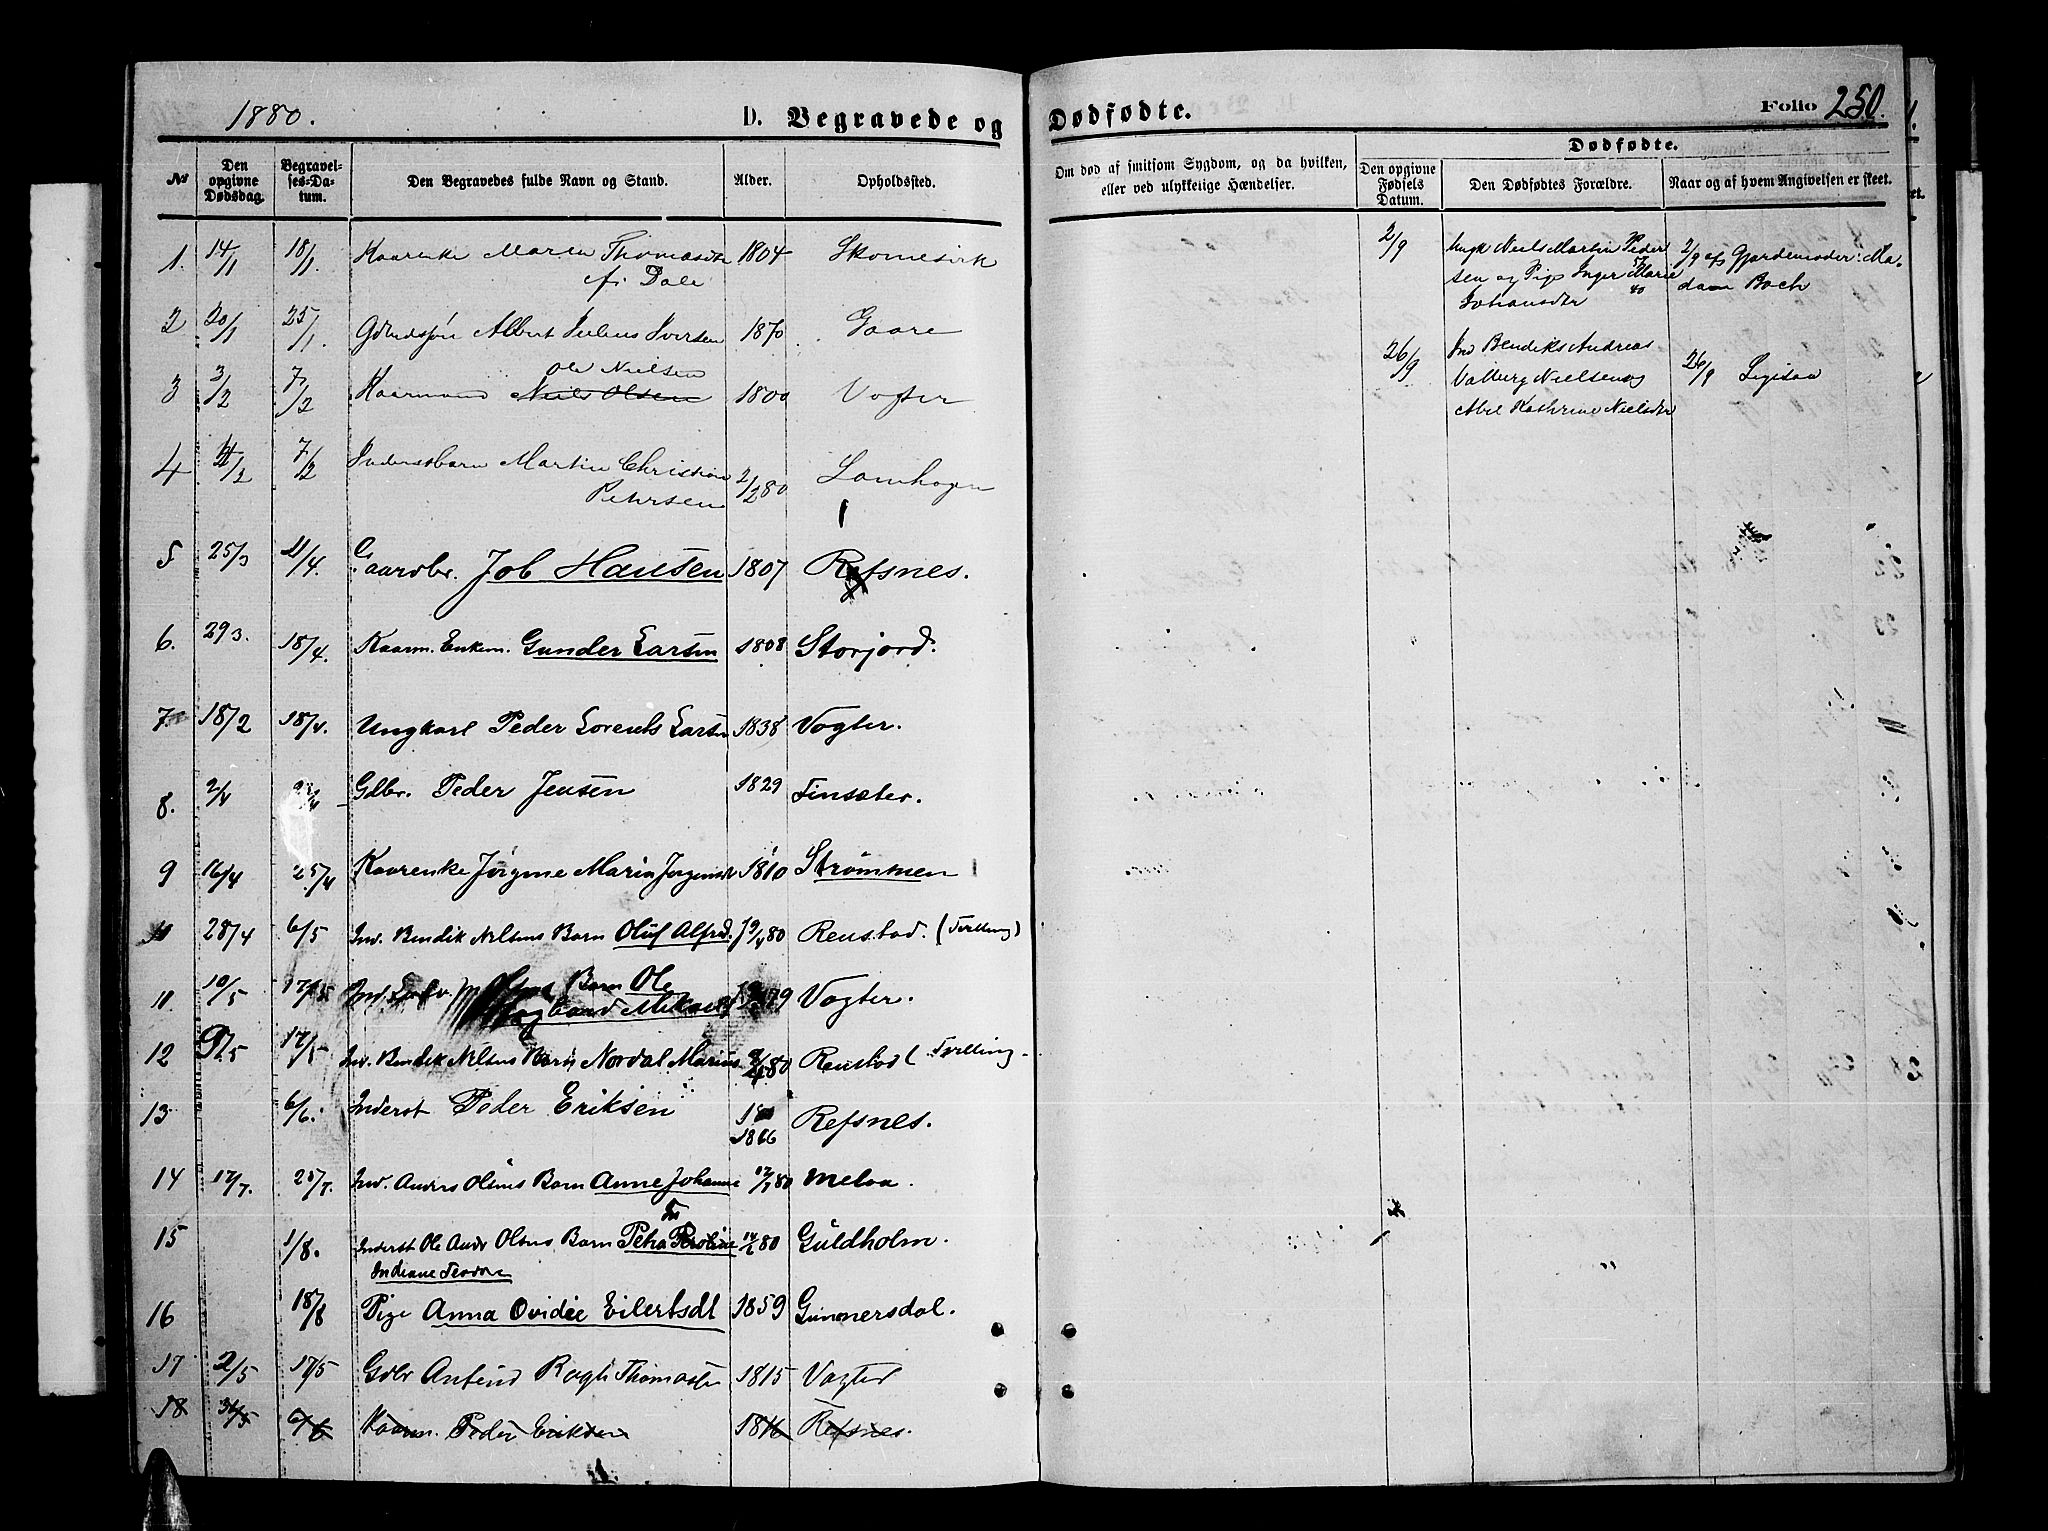 1880.
D. Begravede og
Dødfødte.
Folio 250.
No
Den opgivne Dødsdag.
Begravelses-Datum.
Den Begravedes fulde Navn og Stand.
Alder.
Opholdssted.
Om død af smitsom Sygdom, og da hvilken, eller ved ulykkelige Hændelser.
Dødfødte.
Den opgivne Fødsels Datum.
Den Dødfødtes Forældre.
Naar og af hvem Angivelsen er skeet.
1. 14/1 18/1. Kaarenke Maren Thomasdtr 1804
fr. Dale
2 20/1 25/1. Albert Julius Iversen 1870 Gaare
Ole Nielsen
3 3/2 7/2 Kaarmand Niels Olsen 1800 Vogter
4 4/2 7/2 Inderstbarn Martin Christian 2/2 80
Petersen
5 25/3 11/4. Gaardbr. Job Hansen 1807 Refsnes.
6. 29 3. 18/4. Kaarm. Enkem. Gunder Larsen 1808 Storjord.
7. 18/2 18/4. Ungkarl Peder Lorents Larsen 1838 Vogter.
8. 2/4 Gdbr. Peder Jensen 1829 Finsæter.
9 16/4 25/4 Kaarenke Jørgine Maria Jørgensdt 1810 Strømmen
28/4 6/5 Ind. Bendik Nilsens Barn Oluf Alfred. 9/4 80 Renstad. (Tvilling)
11 10/5 17/5 Ind. Barn Ole 79 Vogter.
12 9/5 17/5 Ind. Bendik Nilsens Barn Nordal Marius 9/4 80 Renstad (Tvilling
13 6/6. Inderst Peder Eriksen
1866 Refsnes.
14 17/7. 25/7. Ind. Anders Olsens Barn Anne Johanne 12/7 80 Meløa.
15 1/8. Inderst Ole Andr Olsens Barn Petra 14/6 80 Guldholm.
Indiane
16 18/8 Pige Anna Ovidie Eilertsdt 1859 Gunnersdal.
17 2/5 17/5 Gdbr 1815 Vogter
18 31/5 6/6 Kaarm. Peder Eriksen 1816 Refsnes.
2/9 Ungk Niels Martin Peder
sen og Pige Inger Marie
Johansdtr
2/9 af Gjordemoder: Ma-
dam Boch
26/9 Ind Bendiks Andreas
Valberg Nielsen og
Abel Kathrine Nielsdtr
26/9 Ligesaa